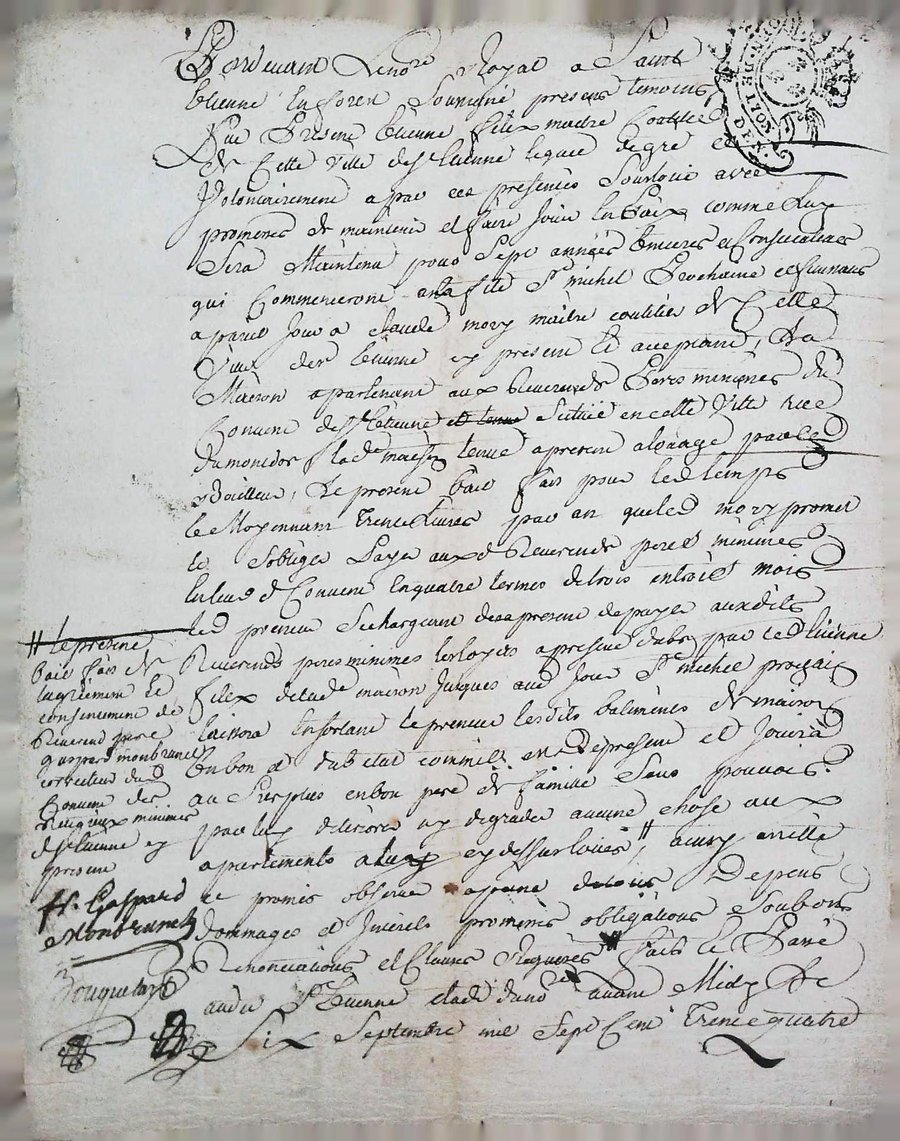 Pardevant Le nore Royal a Saint
Etienne en forest Soussigné presens temoins
Fut Present Etienne felix maitre Coutellier
de Cette ville de st Etienne lequel de gré et
Volontairement a par ces presentes Sousloüé avec
promesse de maintenir et faire Jouir En Paix comme Luy
Sera Maintenu pour Sept années Entieres et Consecutives
qui Commenceront a la fete St michel Prochaine et finiront
a pareil Jour a claude mory maitre coutelier de Cette
Ville de st Etienne cy present et acceptant, La
Maison apartenant aux Reverends Peres minimes du
Convent de st Etienne Scituée en cette Ville rue
du mont dor lad e maison tenue a present a loüage par led
Bailleur, Le present bail fait pour led temps
et Moyennant Trente Livres par an que led mory promet
et Soblige Payer auxd Reverends peres minimes
en leurd Convent En quatre termes de trois en trois mois
led preneur Se chargeant des a present de payer auxdits
Reverends peres minimes les loyers a present dubs par led Etienne
felix de lad e maison Jusques aud Jour St michel prochain
laissera En sortant le preneur lesdits batiments de maison
En bon et dub etat comme ils sont de present et Jouira
au Surplus en bon pere de famille Sans pouvoir
par luy deteriorer ny degrader aucune chose aux
apartements a luy cy dessus loüés, // ainsy arresté
et promis observer a peine de tous Depens
dommages et Interets promesses obligations Soubmis
Renonciations et Clauses Requises fait et Passé
aud St Etienne etude dud nore avant Midy Le
Six Septembre mil Sept Cent Trente quatre
// le present
bail fait de
lagrement et
consentement de
Reverend pere
gaspard monbrunet
correcteur dud
Convent des
Religieux minimes
de st Etienne cy
present
fr. Gaspard
Monbrunet
GEN. DE LYON
DEN.